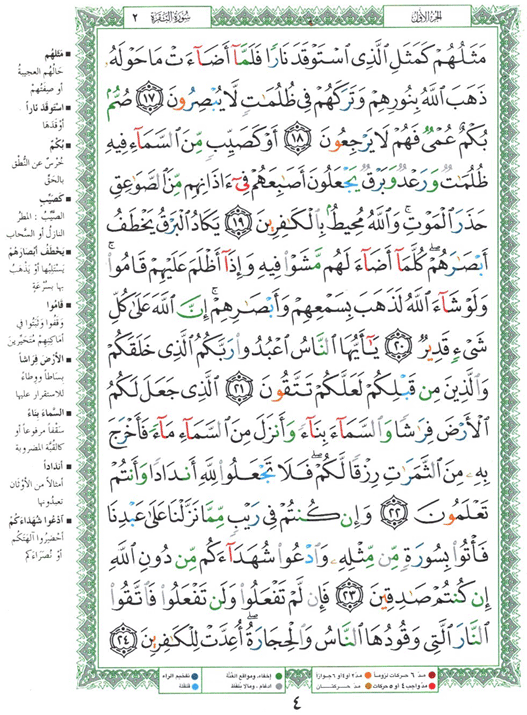 الجزء الأول
سورة البقرة ٢
مَثَلُهُمْ كَمَثَلِ ٱلَّذِى ٱسْتَوْقَدَ نَارًا فَلَمَّآ أَضَآءَتْ مَا حَوْلَهُۥ
ذَهَبَ ٱللَّهُ بِنُورِهِمْ وَتَرَكَهُمْ فِى ظُلُمَٰتٍ لَّا يُبْصِرُونَ ١٧ صُمٌّۢ
بُكْمٌ عُمْىٌ فَهُمْ لَا يَرْجِعُونَ ١٨ أَوْ كَصَيِّبٍ مِّنَ ٱلسَّمَآءِ فِيهِ
ظُلُمَٰتٌ وَرَعْدٌ وَبَرْقٌ يَجْعَلُونَ أَصَٰبِعَهُمْ فِىٓ ءَاذَانِهِم مِّنَ ٱلصَّوَٰعِقِ
حَذَرَ ٱلْمَوْتِ ۚ وَٱللَّهُ مُحِيطٌۢ بِٱلْكَٰفِرِينَ ١٩ يَكَادُ ٱلْبَرْقُ يَخْطَفُ
أَبْصَٰرَهُمْ ۖ كُلَّمَآ أَضَآءَ لَهُم مَّشَوْا۟ فِيهِ وَإِذَآ أَظْلَمَ عَلَيْهِمْ قَامُوا۟ ۚ
وَلَوْ شَآءَ ٱللَّهُ لَذَهَبَ بِسَمْعِهِمْ وَأَبْصَٰرِهِمْ ۚ إِنَّ ٱللَّهَ عَلَىٰ كُلِّ
شَىْءٍ قَدِيرٌ ٢٠ يَٰٓأَيُّهَا ٱلنَّاسُ ٱعْبُدُوا۟ رَبَّكُمُ ٱلَّذِى خَلَقَكُمْ
وَٱلَّذِينَ مِن قَبْلِكُمْ لَعَلَّكُمْ تَتَّقُونَ ٢١ ٱلَّذِى جَعَلَ لَكُمُ
ٱلْأَرْضَ فِرَٰشًا وَٱلسَّمَآءَ بِنَآءً وَأَنزَلَ مِنَ ٱلسَّمَآءِ مَآءً فَأَخْرَجَ
بِهِۦ مِنَ ٱلثَّمَرَٰتِ رِزْقًا لَّكُمْ ۖ فَلَا تَجْعَلُوا۟ لِلَّهِ أَندَادًا وَأَنتُمْ
تَعْلَمُونَ ٢٢ وَإِن كُنتُمْ فِى رَيْبٍ مِّمَّا نَزَّلْنَا عَلَىٰ عَبْدِنَا
فَأْتُوا۟ بِسُورَةٍ مِّن مِّثْلِهِۦ وَٱدْعُوا۟ شُهَدَآءَكُم مِّن دُونِ ٱللَّهِ
إِن كُنتُمْ صَٰدِقِينَ ٢٣ فَإِن لَّمْ تَفْعَلُوا۟ وَلَن تَفْعَلُوا۟ فَٱتَّقُوا۟
ٱلنَّارَ ٱلَّتِى وَقُودُهَا ٱلنَّاسُ وَٱلْحِجَارَةُ ۖ أُعِدَّتْ لِلْكَٰفِرِينَ ٢٤
مَثَلُهُم
حالُهم العجيبةُ
أو صفتُهُم
استوقدَ ناراً
أوقدَها
بُكْمٌ
خُرْسٌ عن النُّطقِ
بالحَقِّ
كصَيِّبٍ
الصَّيِّبُ : المطرُ
النازلُ أو السَّحابُ
يَخْطَفُ أبصارَهُم
يَسْتَلِبُها أو يَذْهَبُ
بها بسُرْعَةٍ
قاموا
وَقَفوا وثَبَتُوا في
أماكِنِهِم مُتَحَيِّرينَ
الأرضَ فِراشاً
بِساطاً ووِطاءً
للاستقرار عليها
السَّماءَ بناءً
سَقفاً مرفوعاً أو
كالقُبَّةِ المضروبةِ
أنداداً
أمثالاً من الأوثانِ
تعبدُونها
ادْعُوا شُهَداءَكُمْ
أحضِرُوا آلهتَكُم
أو نُصَراءَكُم
مدّ ٦ حركات لزوماً
مدّ ٢ أو ٤ أو ٦ جوازاً
إخفاء، ومواقع الغُنَّة
تفخيم الراء
مدّ واجب ٤ أو ٥ حركات
مدّ حركتان
إدغام ، وما لا يُلفظ
قلقلة
٤